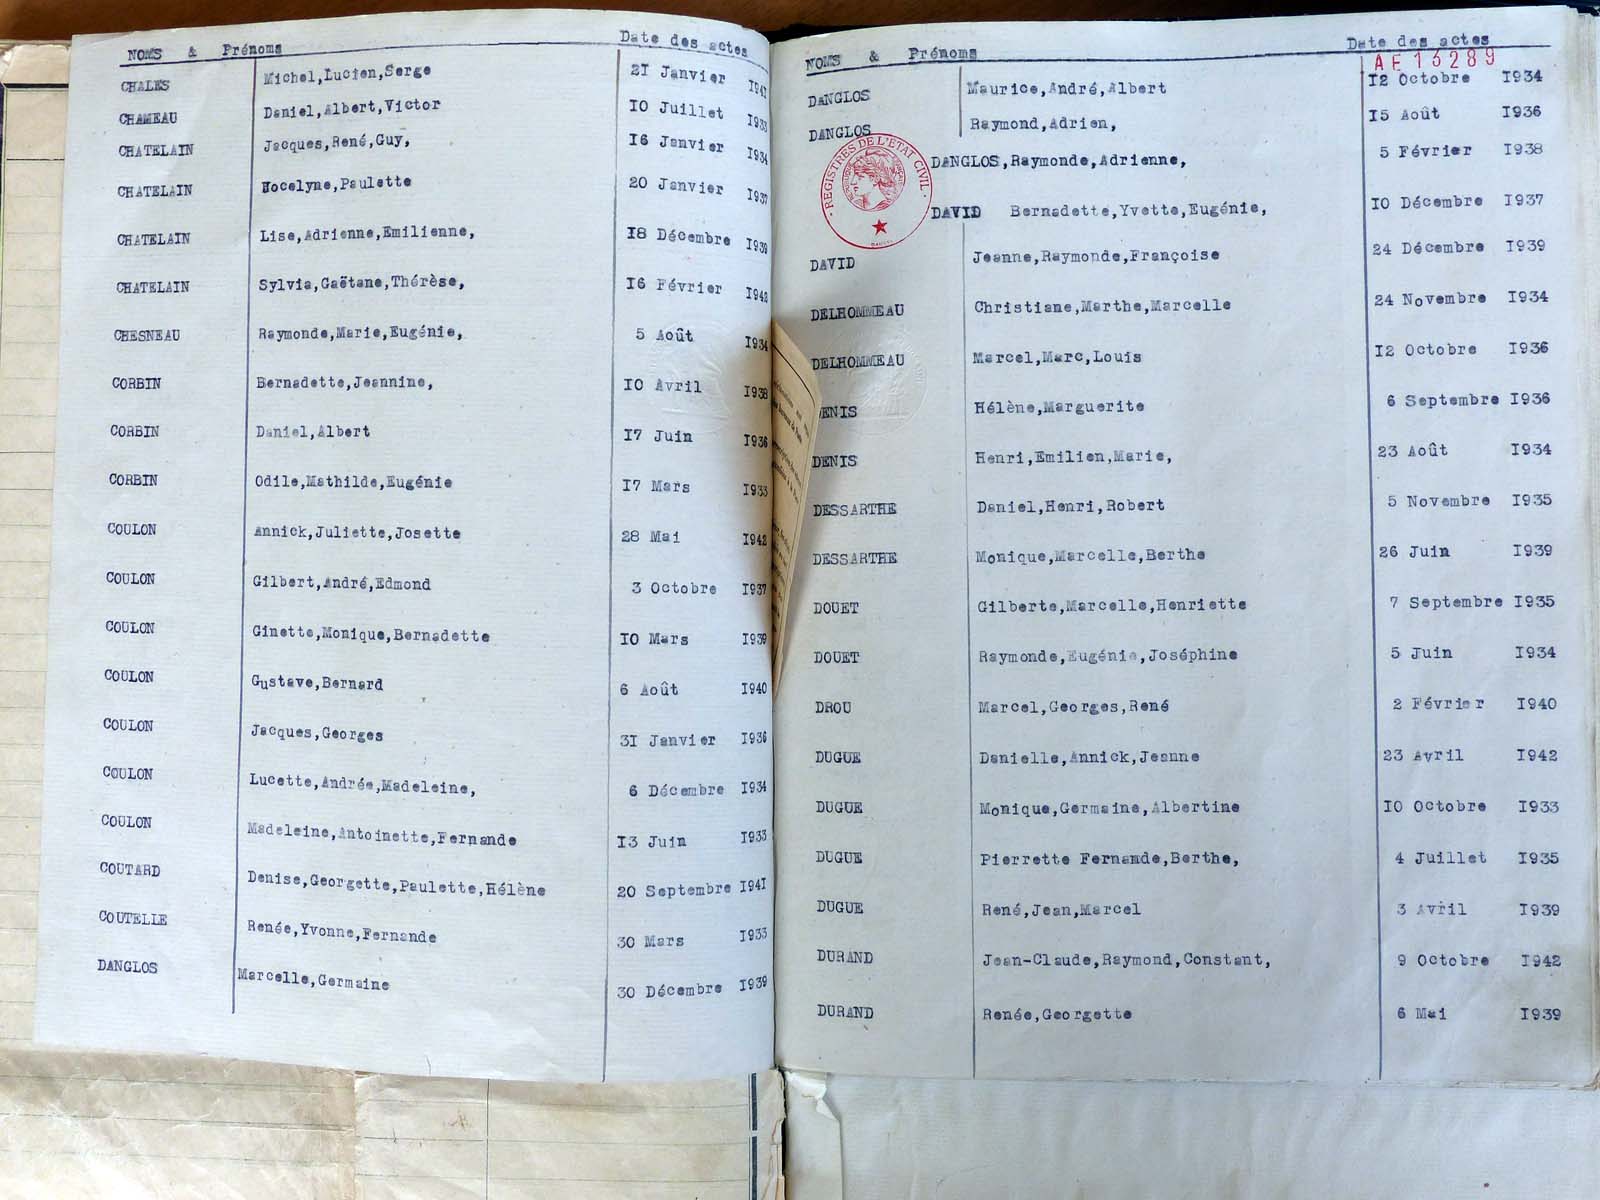 NOMS & Prénoms Date des actes
CHALES Michel,Lucien,Serge 21 Janvier 1941
CHAMEAU Daniel,Albert,Victor 10 Juillet 1933
CHATELAIN Jacques,René,Guy, 16 Janvier 1934
CHATELAIN Jocelyne,Paulette 20 Janvier 1937
CHATELAIN Lise,Adrienne,Emilienne, 18 Décembre 1939
CHATELAIN Sylvia,Gaëtane,Thérèse, 16 Février 1942
CHESNEAU Raymonde,Marie,Eugénie, 5 Août 1934
CORBIN Bernadette,Jeannine, 10 Avril 1938
CORBIN Daniel,Albert 17 Juin 1936
CORBIN Odile,Mathilde,Eugénie 17 Mars 1933
COULON Annick,Juliette,Josette 28 Mai 1942
COULON Gilbert,André,Edmond 3 Octobre 1937
COULON Ginette,Monique,Bernadette 10 Mars 1939
COULON Gustave,Bernard 6 Août 1940
COULON Jacques,Georges 31 Janvier 1936
COULON Lucette,Andrée,Madeleine, 6 Décembre 1934
COULON Madeleine,Antoinette,Fernande 13 Juin 1933
COUTARD Denise,Georgette,Paulette,Hélène 20 Septembre 1941
COUTELLE Renée,Yvonne,Fernande 30 Mars 1933
DANGLOS Marcelle,Germaine 30 Décembre 1939
NOMS & Prénoms Date des actes
AE 13289
DANGLOS Maurice,André,Albert 12 Octobre 1934
DANGLOS Raymond,Adrien, 15 Août 1936
REGISTRES DE L'ETAT CIVIL
DANGLOS,Raymonde,Adrienne, 5 Février 1938
DAVID Bernadette,Yvette,Eugénie, 10 Décembre 1937
DAVID Jeanne,Raymonde,Françoise 24 Décembre 1939
DELHOMMEAU Christiane,Marthe,Marcelle 24 Novembre 1934
DELHOMMEAU Marcel,Marc,Louis 12 Octobre 1936
DENIS Hélène,Marguerite 6 Septembre 1936
DENIS Henri,Emilien,Marie, 23 Août 1934
DESSARTHE Daniel,Henri,Robert 5 Novembre 1935
DESSARTHE Monique,Marcelle,Berthe 26 Juin 1939
DOUET Gilberte,Marcelle,Henriette 7 Septembre 1935
DOUET Raymonde,Eugénie,Joséphine 5 Juin 1934
DROU Marcel,Georges,René 2 Février 1940
DUGUE Danielle,Annick,Jeanne 23 Avril 1942
DUGUE Monique,Germaine,Albertine 10 Octobre 1933
DUGUE Pierrette Fernande,Berthe, 4 Juillet 1935
DUGUE René,Jean,Marcel 3 Avril 1939
DURAND Jean-Claude,Raymond,Constant, 9 Octobre 1942
DURAND Renée,Georgette 6 Mai 1939